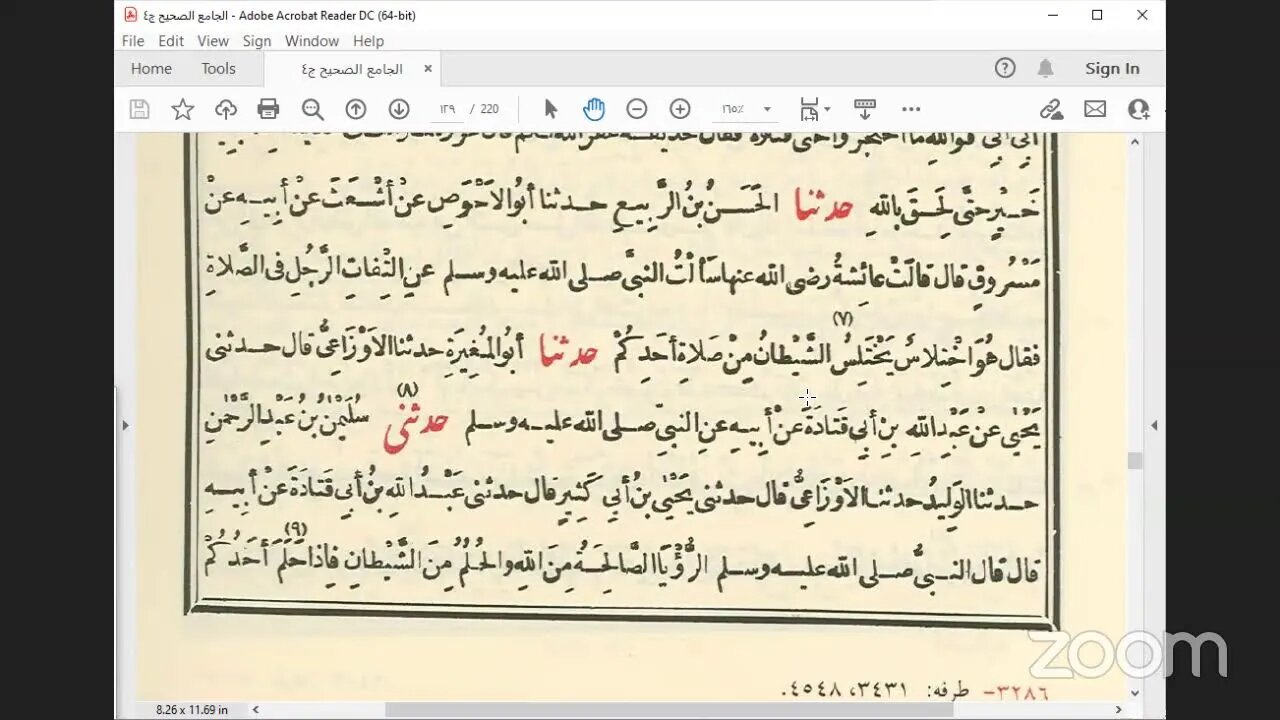 الجامع الصحيح ج٤ - Adobe Acrobat Reader DC (64-bit)
File Edit View Sign Window Help
Home Tools الجامع الصحيح ج٤ × Sign In
١٢٩ / 220 ١٦٥٪
أبى أبى فوالله ما احتجزوا حتى قتلوه فقال حذيفة غفر الله لكم قال عروة
خَيْرٍ حتَّى لَحِقَ بِاللهِ حدثنا الحَسَنُ بْنُ الرَّبِيعِ حدثنا أبُو الاَحْوَصِ عنْ أشْعَثَ عنْ أبِيهِ عنْ
مَسْرُوقٍ قال قالَتْ عائِشةُ رضى الله عنها سَألْتُ النبيَّ صلى الله عليه وسلم عنِ الْتِفاتِ الرَّجُلِ فى الصَّلاةِ
(٧)
فقال هُوَ اخْتِلاسٌ يَخْتَلِسُ الشَّيْطانُ مِنْ صَلاةِ أحَدِكُمْ حدثنا أبُو المُغِيرَةِ حدثنا الاَوْزَاعِىُّ قال حدثنى
(٨)
يَحْيَى عنْ عَبْدِ اللهِ بنِ أبِى قَتادَةَ عنْ أبِيهِ عنِ النبيِّ صلى الله عليه وسلم حدثنى سُلَيْمٰنُ بْنُ عَبْدِ الرَّحْمٰنِ
حدثنا الوَلِيدُ حدثنا الاَوْزَاعِىُّ قال حدثنى يَحْيَى بنُ أبِى كَثِيرٍ قال حدثنى عَبْدُ اللهِ بنُ أبِى قَتادَةَ عنْ أبِيهِ
(٩)
قال قال النبيُّ صلى الله عليه وسلم الرُّؤْيَا الصَّالِحَةُ مِنَ اللهِ والحُلُمُ مِنَ الشَّيْطانِ فاذا حَلَمَ أحَدُكُمْ
٣٢٨٦- طرفه: ٣٤٣١، ٤٥٤٨.
8.26 x 11.69 in
zoom